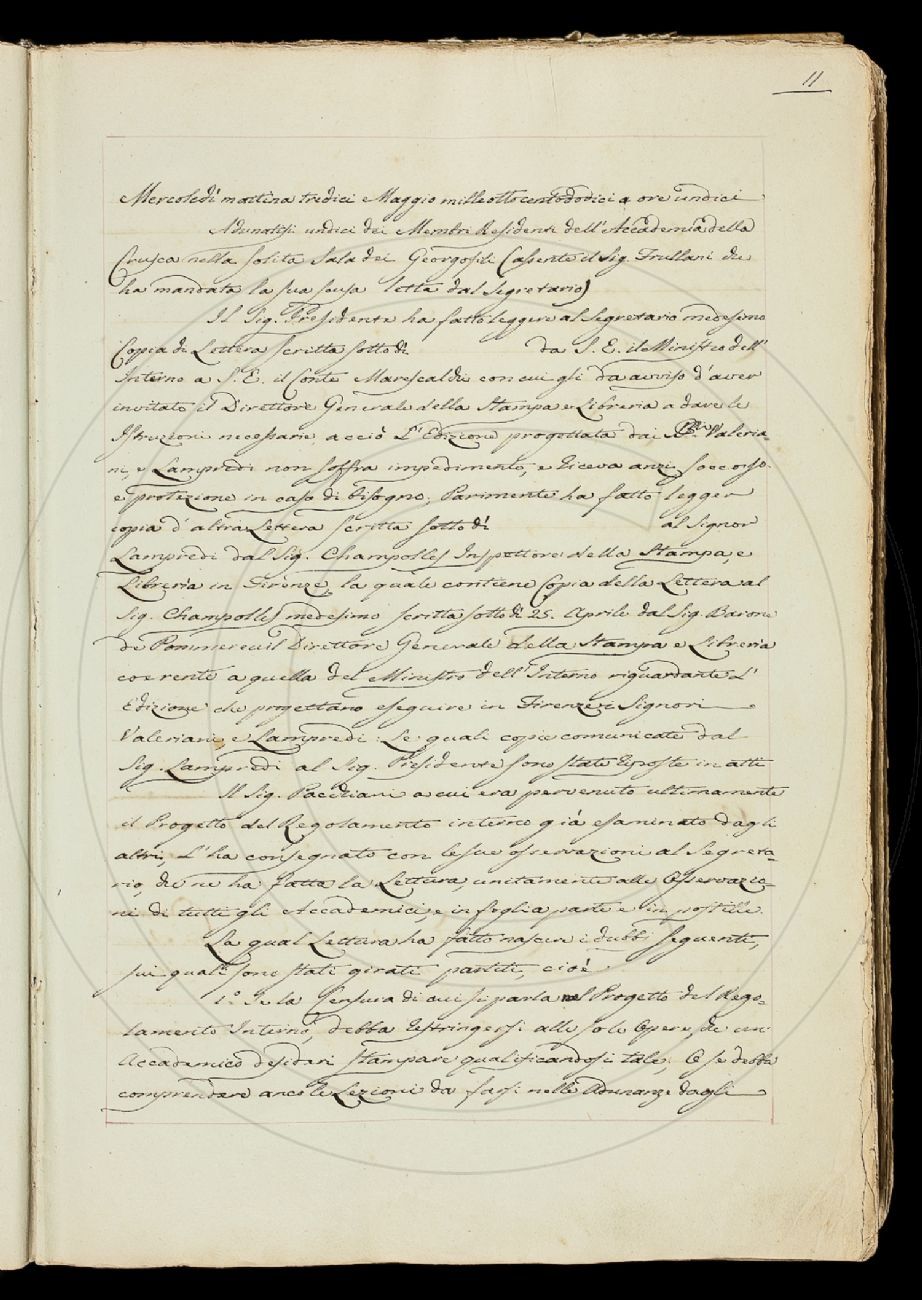 11
Mercoledì mattina tredici Maggio milleottocentododici a ore undici
Adunatisi undici dei Membri Residenti dell'Accademia della
Crusca nella solita Sala dei Georgofili (assente il Sig. Frullani che
ha mandata la sua scusa letta dal Segretario)
Il Sig. Presidente ha fatto leggere al Segretario medesimo
Copia di Lettera scritta sotto dì da S. E. il Ministro dell'
Interno a S. E. il Conte Marescalchi con cui gli da avviso d'aver
invitato il Direttore Generale della Stampa e Libreria a dare le
Istruzioni necessarie, acciò l'Edizione progettata dai SS.ri Valeria-
ni, e Lampredi non soffra impedimento, e riceva anzi soccorso.
e protezione in caso di bisogno; Parimente ha fatto legger
copia d'altra Lettera scritta sotto dì al Signor
Lampredi dal Sig. Champolles Inspettore della Stampa, e
Libreria in Firenze, la quale contiene Copia della Lettera al
Sig. Champolles medesimo scritta sotto dì 25. Aprile dal Sig. Barone
de Pommereuil Direttore Generale della Stampa e Libreria
coerente a quella del Ministro dell'Interno riguardante l'
Edizione che progettano eseguire in Firenze i Signori
Valeriani e Lampredi. Le quali copie comunicate dal
Sig. Lampredi al Sig. Presidente sono state riposte in atti
Il Sig. Pacchiani a cui era pervenuto ultimamente
il Progetto del Regolamento interno già esaminato dagli
altri, l'ha consegnato con le sue osservazioni al Segreta-
rio, che ne ha fatta la Lettura, unitamente alle Osservazio-
ni di tutti gli Accademici e in foglia parte e in postille.
La qual Lettura ha fatto nascere i dubbi seguenti,
sui quali sono stati girati partiti, cioè
1.° Se la Censura di cui si parla nel Progetto del Rego-
lamento Interno, debba restringersi alle sole Opere, che un
Accademico desideri stampare qualificandosi tale; O se debba
comprendere anco le Lezioni da farsi nelle Adunanze dagli